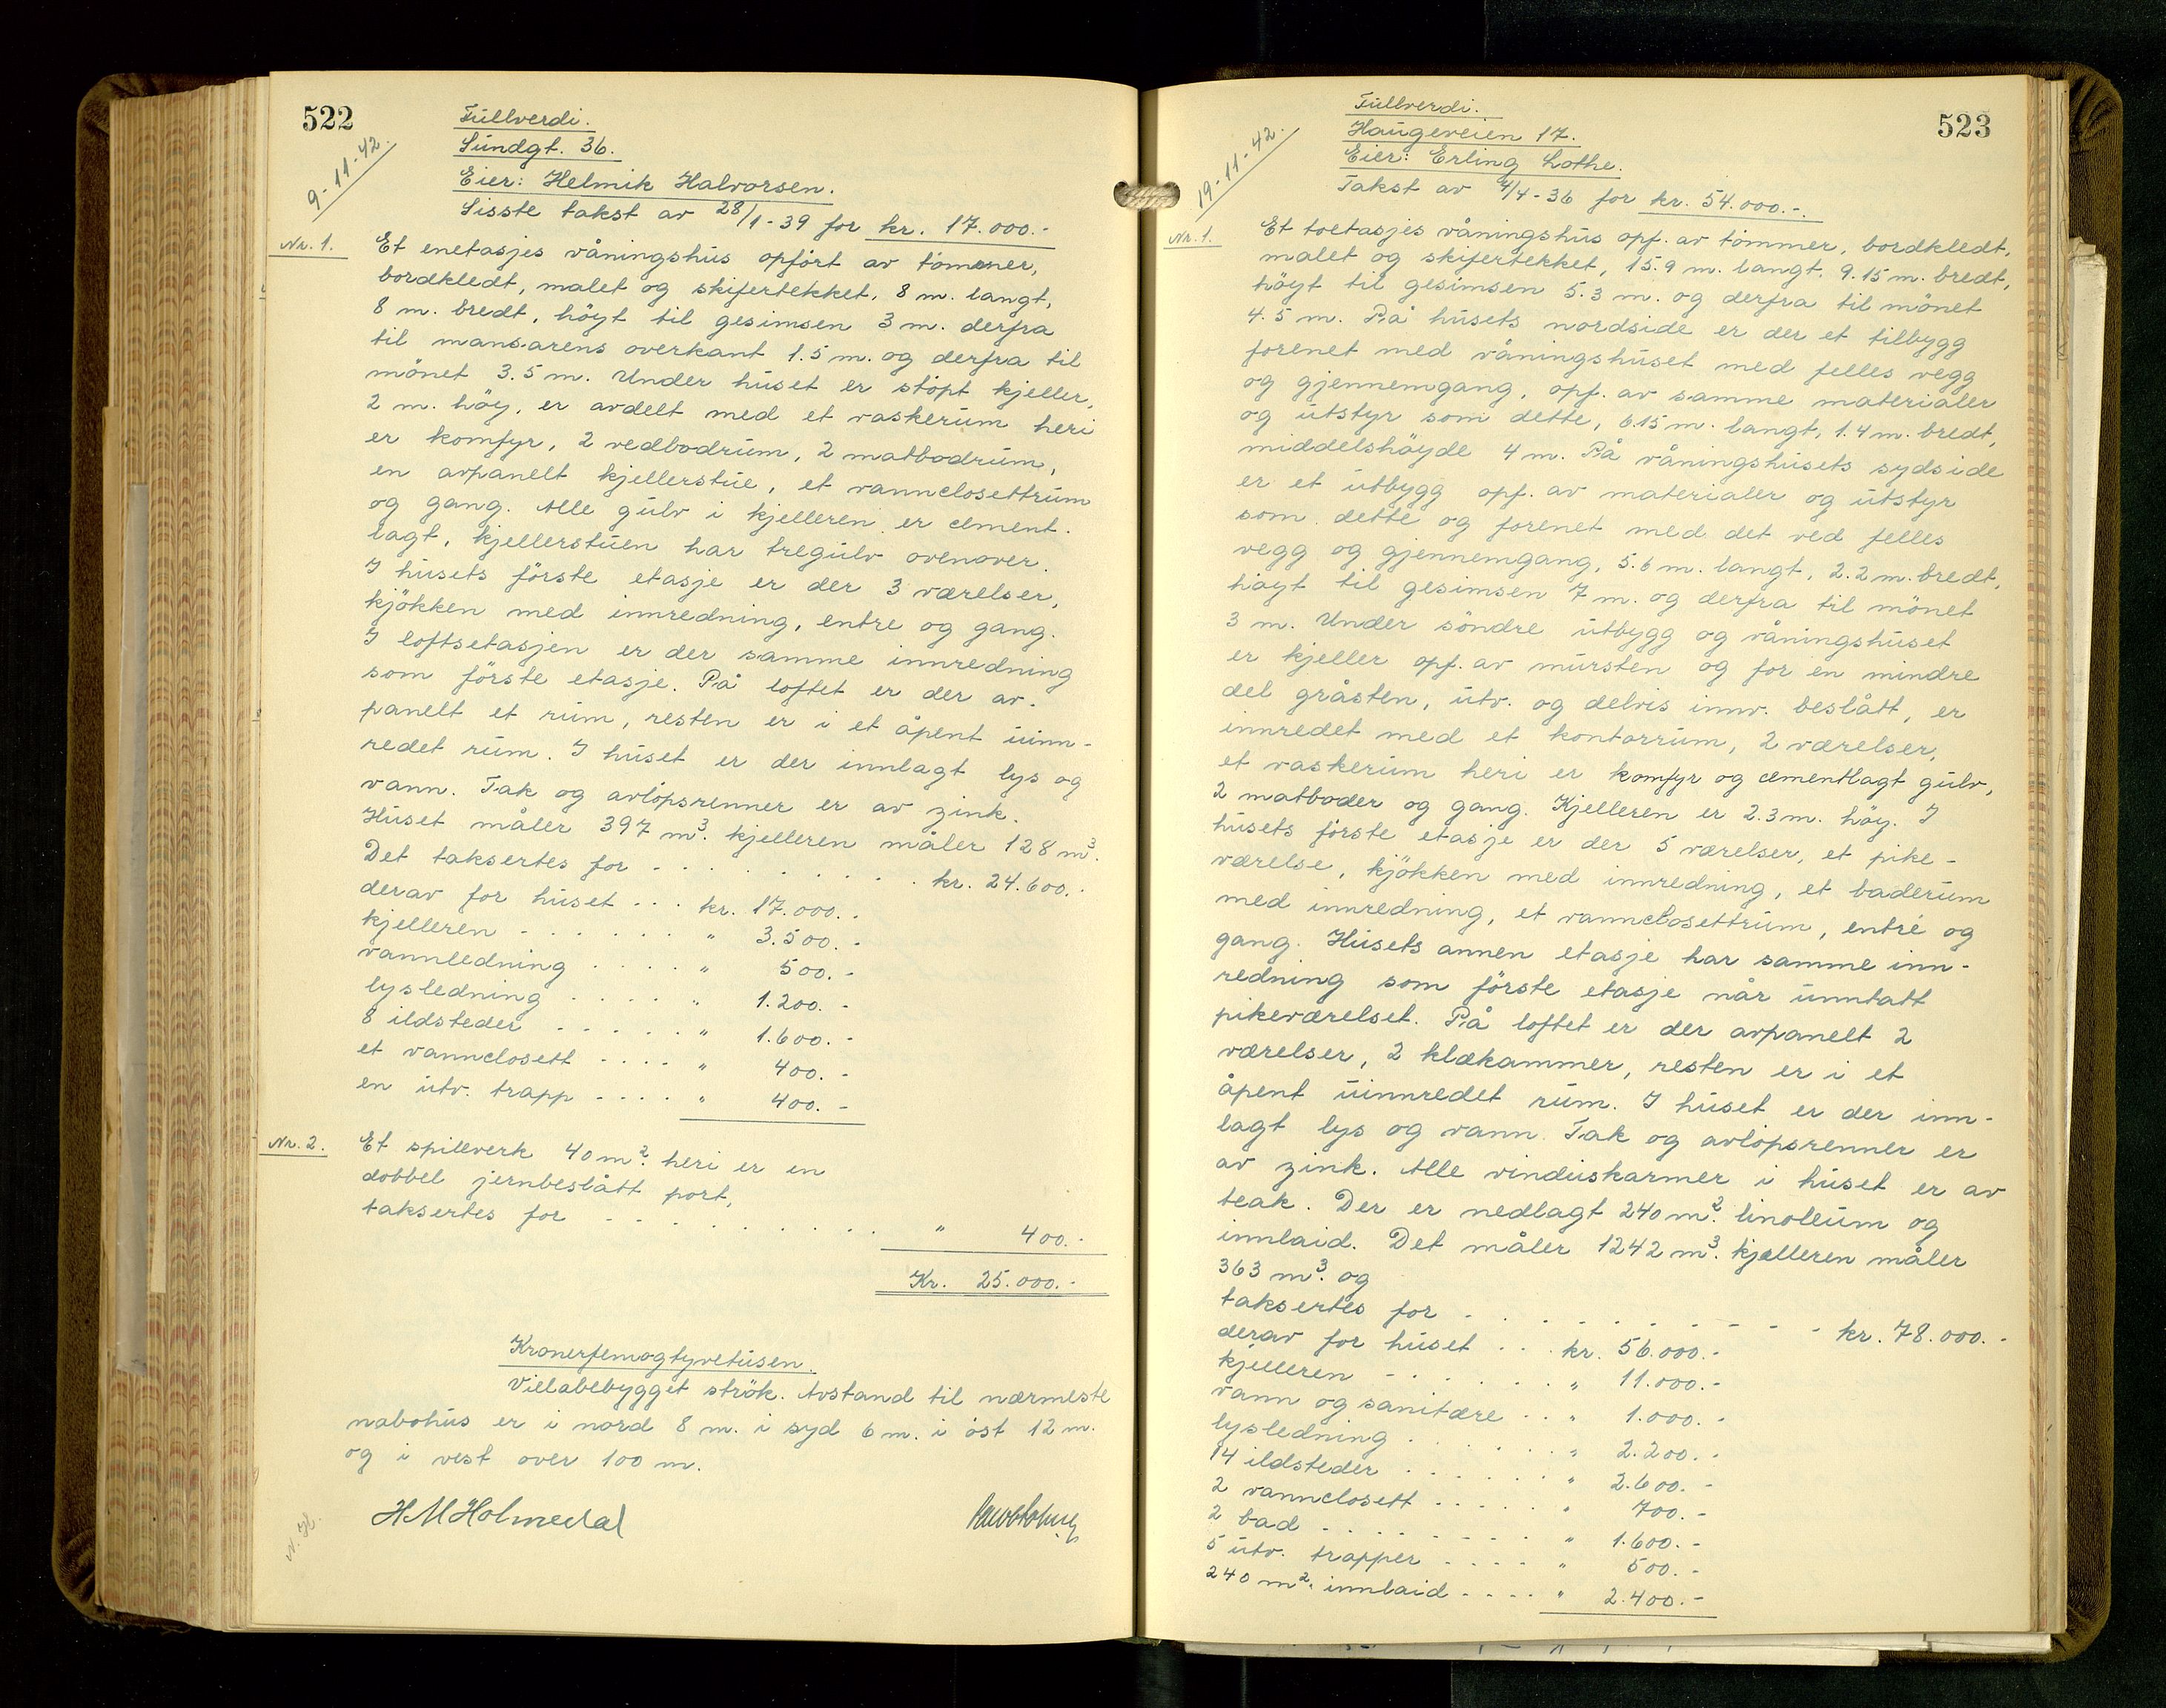 522
9-11-42.
Fullverdi.
Sundgt. 36.
Eier: Helmik Halvorsen.
Sisste takst av 28/1-39 for kr. 17.000.-
Nr. 1.
Et enetasjes våningshus opfört av tömmer,
bordkledt, malet og skifertekket, 8 m. langt,
8 m. bredt, höyt til gesimsen 3 m. derfra
til mansarens overkant 1.5 m. og derfra til
mönet 3.5 m. Under huset er stöpt kjeller,
2 m. höy, er avdelt med et vaskerum heri
er komfyr, 2 vedbodrum, 2 matbodrum,
en avpanelt kjellerstue, et vannclosettrum
og gang. Alle gulv i kjelleren er cement.
lagt, kjellerstuen har tregulv ovenover.
I husets förste etasje er der 3 værelser,
kjökken med innredning, entre og gang.
I loftsetasjen er der samme innredning
som förste etasje. På loftet er der av.
panelt et rum, resten er i et åpent uinn-
redet rum. I huset er der innlagt lys og
vann. Tak og avlöpsrenner er av zink.
Huset måler 397 m³. kjelleren måler 128 m³.
Det taksertes for - . . . . . . . . . kr. 24.600.-
derav for huset . . . kr. 17.000.-
kjelleren - . . . . . . " 3.500.-
vannledning . . . . " 500.-
lysledning . . . . . " 1.200.-
8 ildsteder . . . . . " 1.600.-
et vannclosett . . . . " 400.-
en utv. trapp - . . . . " 400.-
Nr. 2.
Et spillverk 40 m². heri er en
dobbel jernbeslått port,
taksertes for - . . . . . . . . . " 400.-
Kr. 25.000.-
Kronerfemogtyvetusen.
Villabebygget strök. Avstand til nærmeste
nabohus er i nord 8 m. i syd 6 m. i öst 12 m.
og i vest over 100 m.
H M Holmedal
N. H.
523
19-11-42.
Fullverdi.
Haugeveien 17.
Eier: Erling Lothe.
Takst av 4/4-36 for kr. 54.000.-.
Nr. 1.
Et toetasjes våningshus opf. av tömmer, bordkledt,
malet og skifertekket, 15.9 m. langt, 9.15 m. bredt,
höyt til gesimsen 5.3 m. og derfra til mönet
4.5 m. På husets nordside er der et tilbygg
forenet med våningshuset med felles vegg
og gjennemgang, opf. av samme materialer
og utstyr som dette, 6.15 m. langt, 1.4 m. bredt,
middelshöyde 4 m. På våningshusets sydside
er et utbygg opf. av materialer og utstyr
som dette og forenet med det ved felles
vegg og gjennemgang, 5.6 m. langt, 2.2 m. bredt,
höyt til gesimsen 7 m. og derfra til mönet
3 m. Under söndre utbygg og våningshuset
er kjeller opf. av mursten og for en mindre
del gråsten, utv. og delvis innv. beslått, er
innredet med et kontorrum, 2 værelser,
et vaskerum heri er komfyr og cementlagt gulv,
2 matboder og gang. Kjelleren er 2.3 m. höy. I
husets förste etasje er der 5 værelser, et pike-
værelse, kjökken med innredning, et baderum
med innredning, et vannclosettrum, entré og
gang. Husets annen etasje har samme inn-
redning som förste etasje når unntatt
pikeværelset. På loftet er der avpanelt 2
værelser, 2 klækammer, resten er i et
åpent uinnredet rum. I huset er der inn-
lagt lys og vann. Tak og avlöpsrenner er
av zink. Alle vinduskarmer i huset er av
teak. Der er nedlagt 240 m². linoleum og
innlaid. Det måler 1242 m³. kjelleren måler
363 m³. og
taksertes for - . . . . . . . . . kr. 78.000.-
derav for huset . . . kr. 56.000.-
kjelleren - . . . . . . " 11.000.-
vann og sanitære . . " 1.000.-
lysledning . . . . . . " 2.200.-
14 ildsteder . . . . . " 2.600.-
2 vannclosett . . . . . " 700.-
2 bad - . . . . . . . " 1.600.-
5 utv. trapper - . . . " 500.-
240 m². innlaid - . . . " 2.400.-